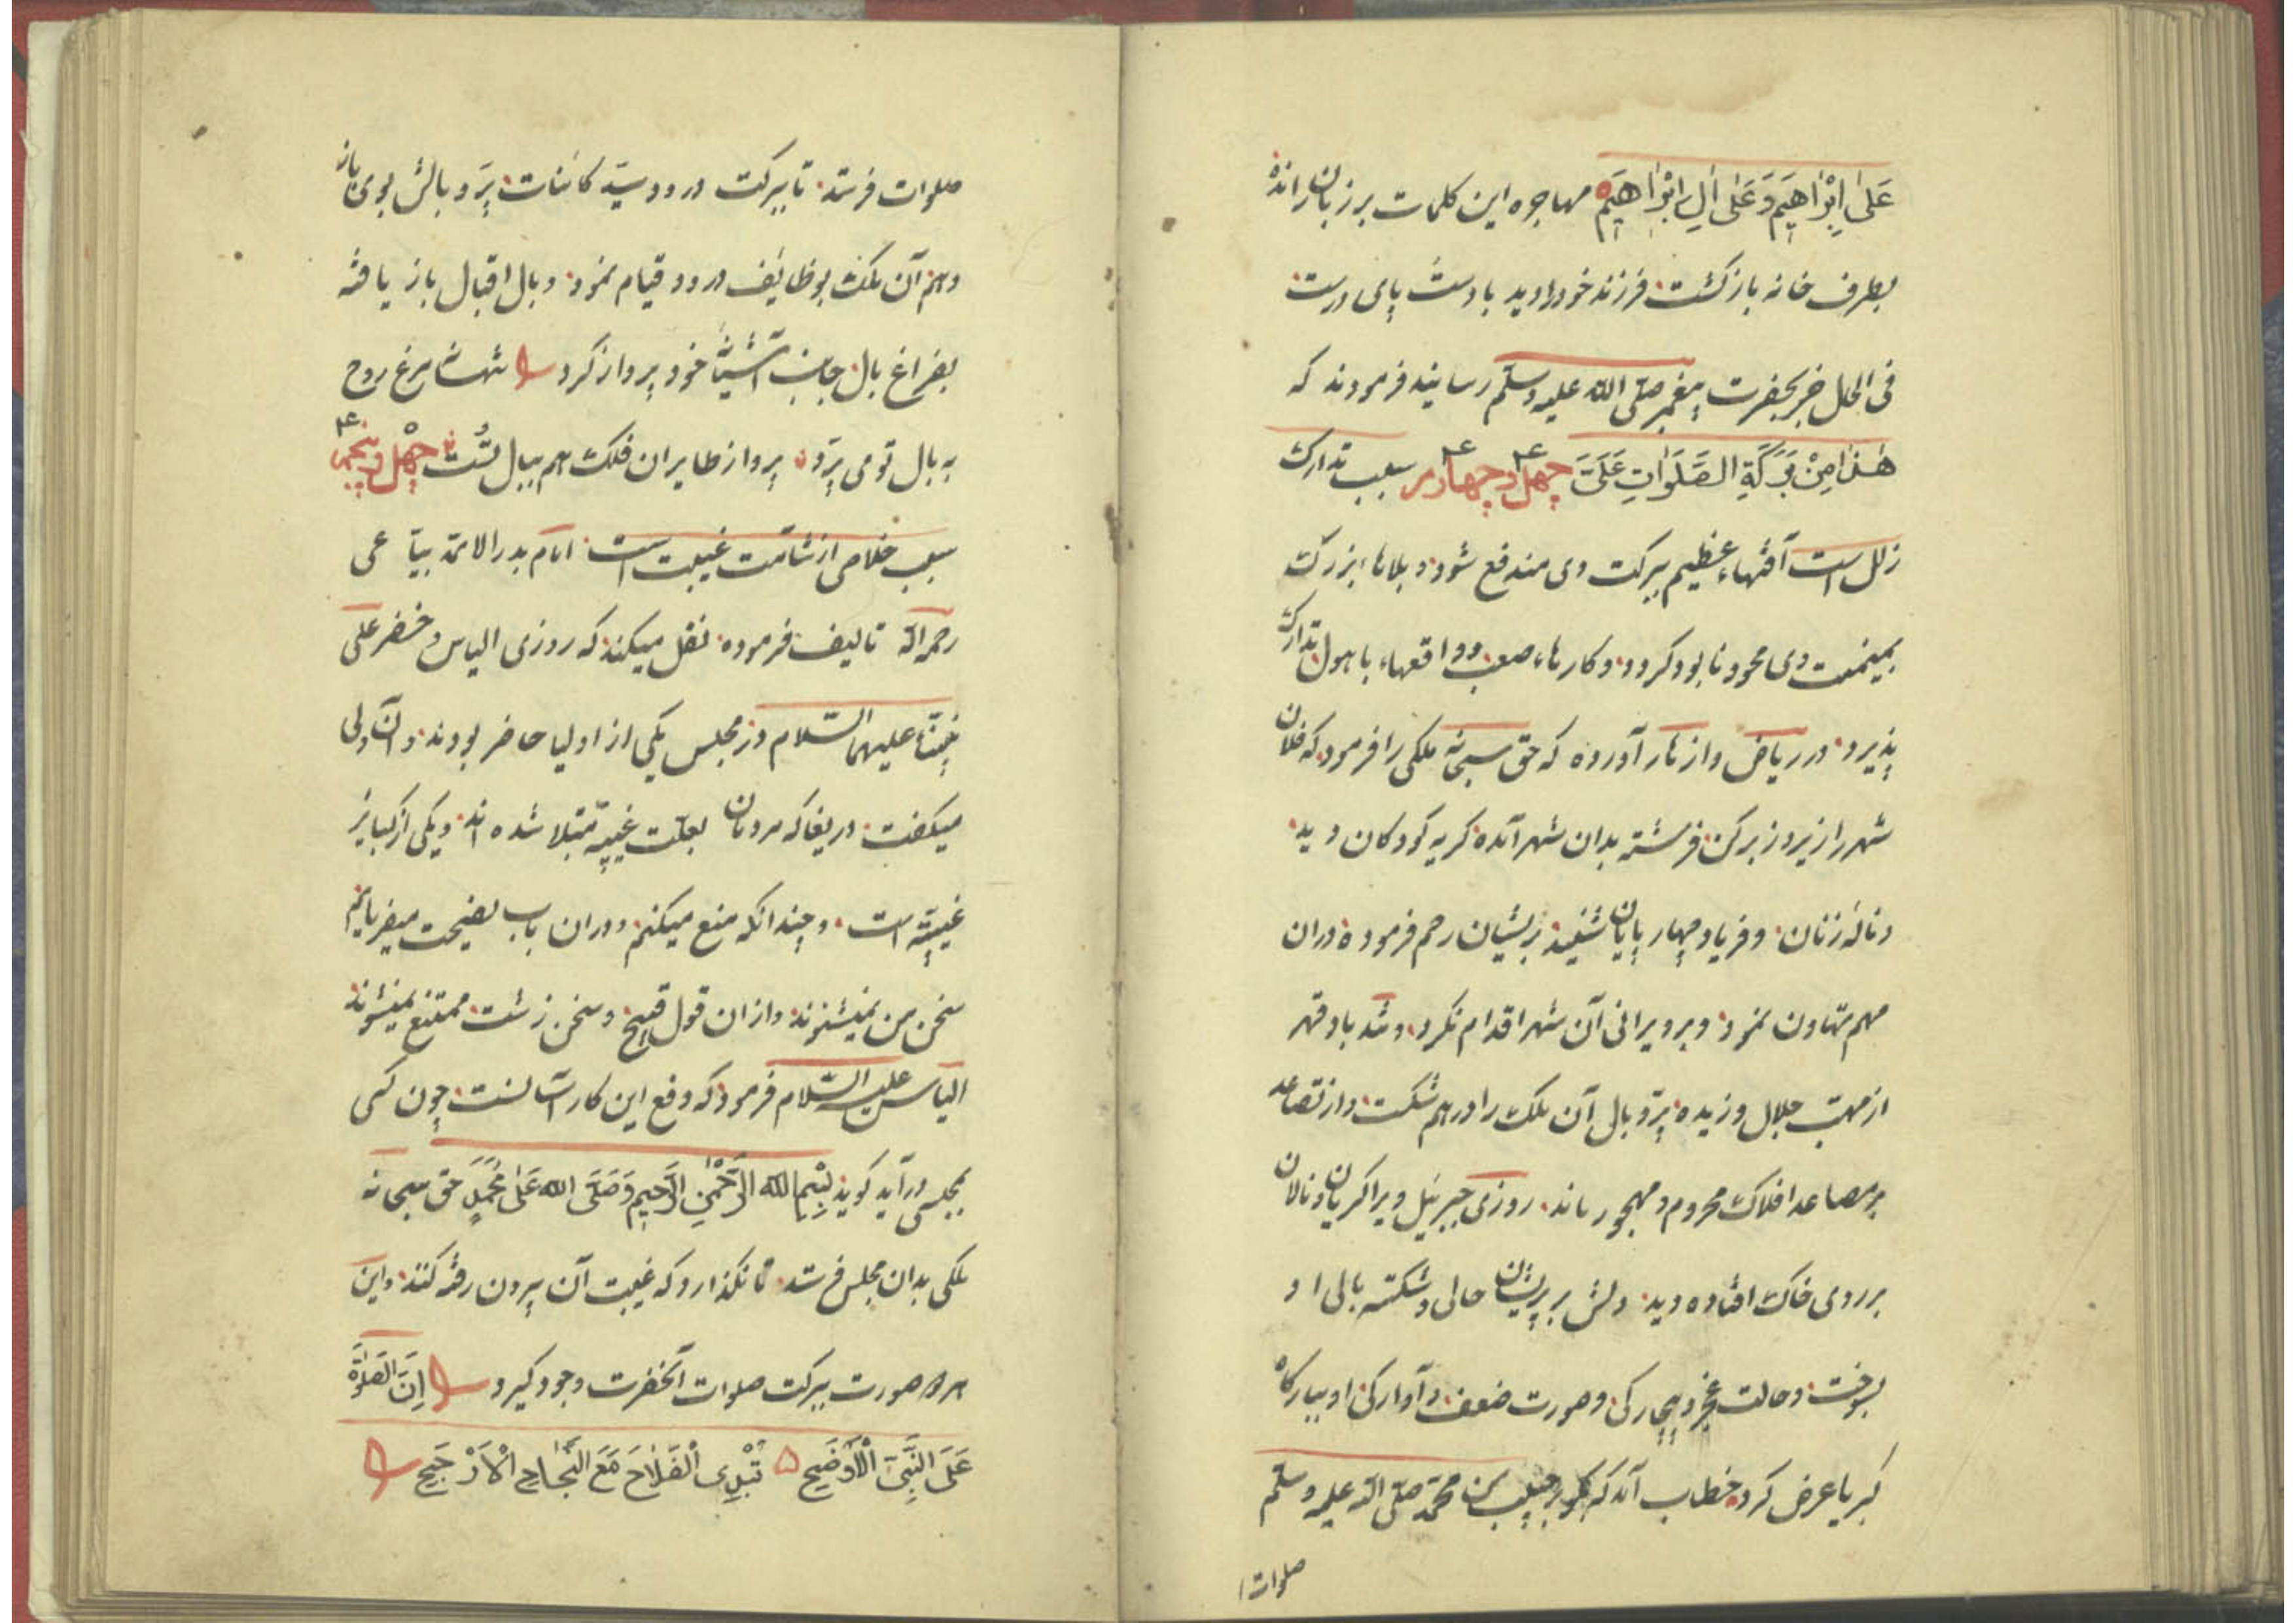 عَلٰی اِبْرٰاهِیمَ وَعَلٰی اٰلِ اِبْرٰاهِیمَ مهاجره این کلمات بر زبان رانده
بطرف خانه بازگشت فرزند خود را دید با دست پای درست
فی الحال خبر بحضرت پیغمبر صلی الله علیه وسلم رسانید فرمودند که
هٰذٰا مِنْ بَرَکَةِ الصَّلَوٰاتِ عَلَیَّ چهل و چهارم سبب تدارک
زلل است آفتهاء عظیم ببرکت وی مندفع شود و بلاهاء بزرگ
بمیمنت وی محو و نابود گردد و کارهاء صعب و واقعهاء با هول تدارک
پذیرد در ریاض و ازهار آورده که حق سبحانه ملکی را فرمود که فلان
شهر را زیر و زبر کن فرشته بدان شهر آمده گریه کودکان دید
و نالهٔ زنان و فریاد چهار پایان شنید بریشان رحم فرموده دران
مهم تهاون نمود و بر ویرانی آن شهر اقدام نکرد و تند باد قهر
از مهب جلال وزیده پر و بال آن ملک را در هم شکست و از تصاعد
بر مصاعد افلاک محروم و مهجور ماند روزی جبرئیل ویرا گریان و نالان
بر روی خاک افتاده دید دلش بر پریشان حالی و شکسته بالی او
بسوخت و حالت عجز و بیچارگی و صورت ضعف و آوارگی او ببارگاه
کبریا عرض کرد خطاب آمد که بگو بر حبیب من محمد صلی الله علیه وسلم
صلوات
صلوات فرستد تا ببرکت درود سید کائنات پر و بالش بوی باز
دهم آن ملک بوظائف درود قیام نمود و بال اقبال باز یافته
بفراغ بال جانب آشیانهٔ خود پرواز کرد شهانه مرغ روح
به بال تو می پرد پرواز طایران فلک هم ببال تست چهل و پنجم
سبب خلاصی از شآمت غیبت است امام بدر الائمة بیاعی
رحمه الله تالیف فرموده نقل میکند که روزی الیاس و خضر علی
نبینا و علیهما السلام در مجلس یکی از اولیا حاضر بودند و آن ولی
میگفت دریغا که مردمان بعلت غیبة مبتلا شده اند و یکی از کبایر
غیبة است و چندانکه منع میکنم و دران باب نصیحت میفرمایم
سخن من نمیشنوند و ازان قول قبیح و سخن زشت ممتنع نمیشوند
الیاس علیه السلام فرمود که دفع این کار آسانست چون کسی
بمجلسی درآید گوید بِسْمِ اللهِ الرَّحْمٰنِ الرَّحِیمِ وَصَلَّی اللهُ عَلٰی مُحَمَّدٍ حق سبحانه
ملکی بدان مجلس فرستد تا نگذارد که غیبت آن بیرون رفته کنند و این
هر دو صورت ببرکت صلوات آنحضرت وجود گیرد اِنَّ الصَّلٰوةَ
عَلَی النَّبِیِّ الْاَوْضَحِ تُبْدِی الْفَلٰاحَ مَعَ النَّجٰاحِ الْاَرْجَحِ